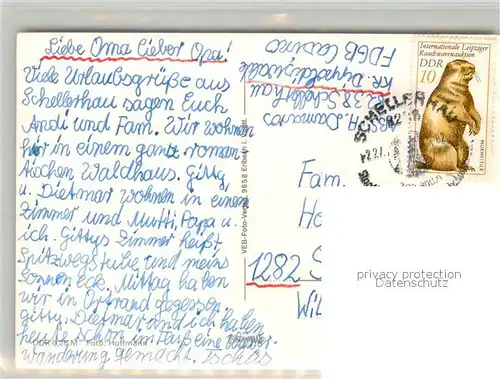 Liebe Oma lieber Opa!
Viele Urlaubsgrüße aus
Schellerhau sagen Euch
Andi und Fam. Wir wohnen
hier in einem ganz roman-
tischen Waldhaus. Gitty
u. Dietmar wohnen in einem
Zimmer und Mutti, Papa u.
ich. Gittys Zimmer heißt
Spitzwegstube und meins
Sonnen Eck. Mittag haben
wir in Ortrand gegessen.
Gitty, Dietmar und ich haben
heute schon zu Fuß eine
Wanderung gemacht. Tschüs
Foto: Hoffmann
VEB-Foto-Verlag 9658 Erlbach i. Vogtl.
H.
8238 Schellerhau
Kr. Dippoldiswalde
FDGB Casino
Internationale Leipziger
Rauchwarenauktion
DDR
10
MURMELTIER
SCHELLERHAU
Fam.
1282
privacy protection
Datenschutz